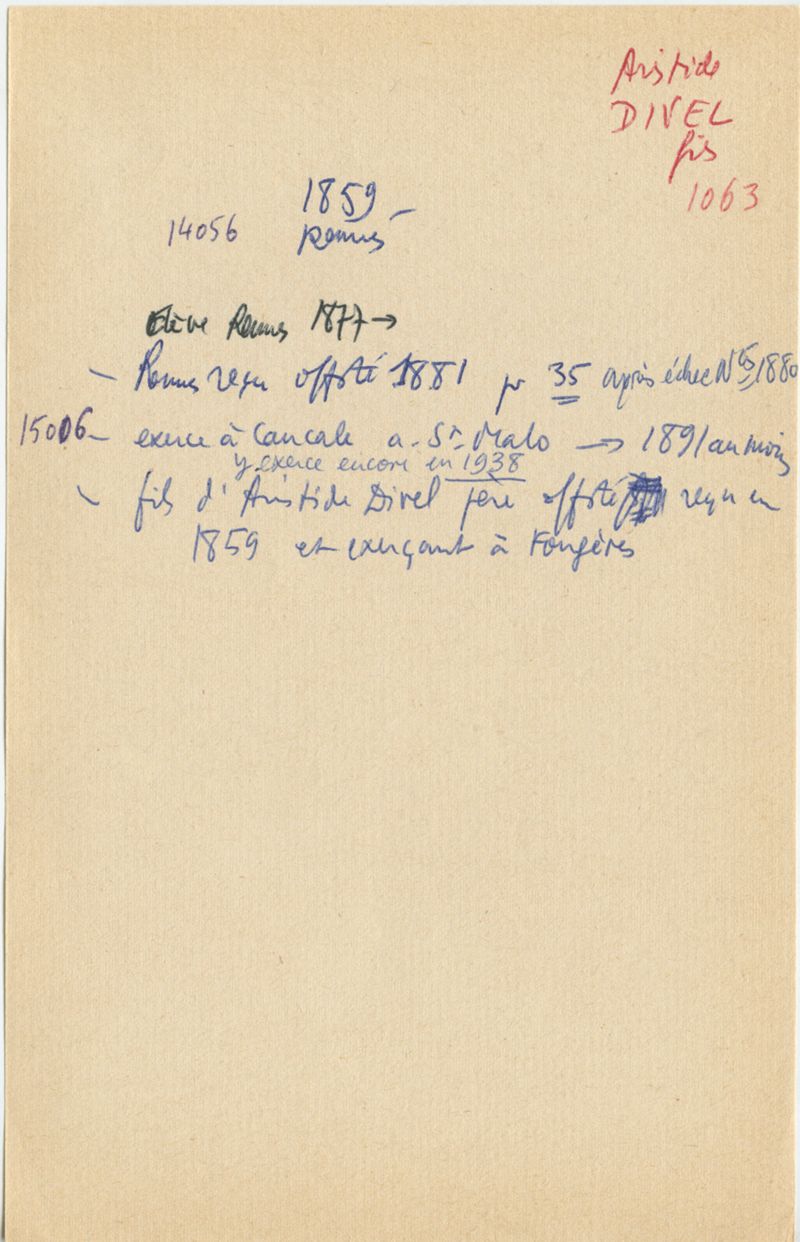 Aristide
DIVEL
fils
1063
1859 -
14056 Rennes
élève Rennes 1877 →
- Rennes reçu offsté 1881 pr 35 après échec Ntes 1880
15006 - exerce à Cancale a. St Malo → 1891 au moins
y exerce encore en 1938
- fils d'Aristide Divel père offsté reçu en
1859 et exerçant à Fougères